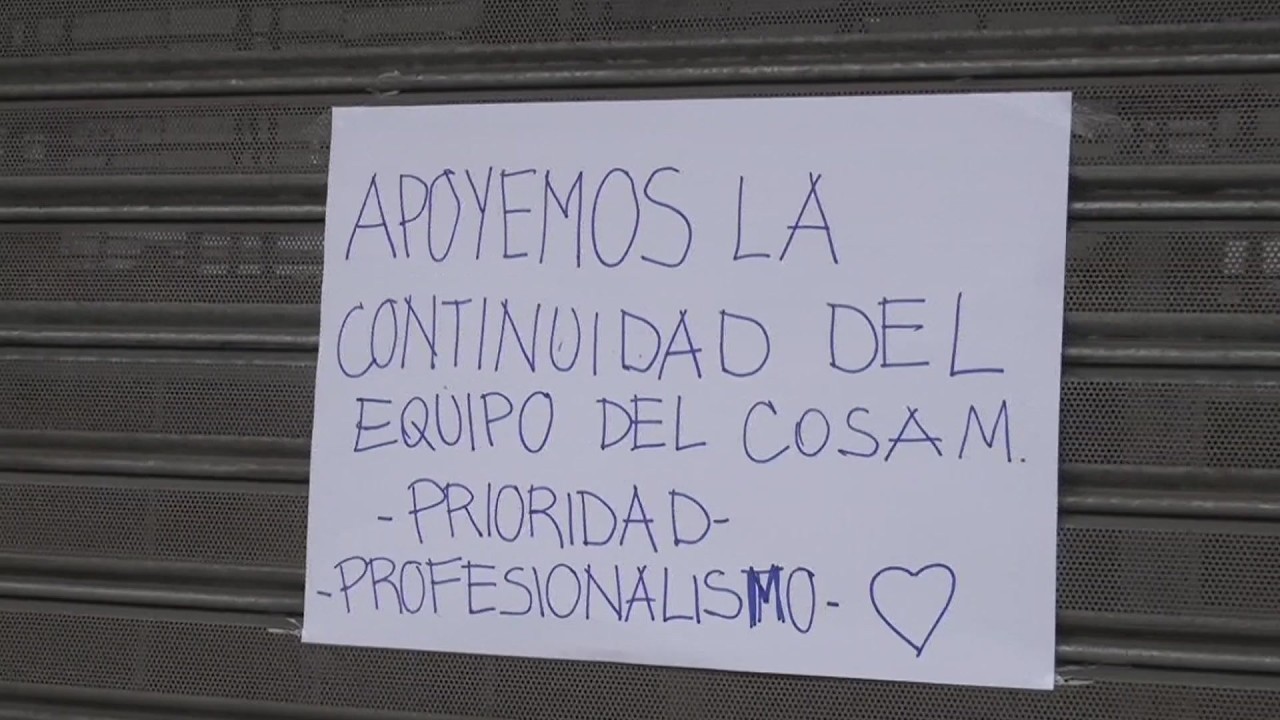 APOYEMOS LA
CONTINUIDAD DEL
EQUIPO DEL COSAM.
-PRIORIDAD-
-PROFESIONALISMO-